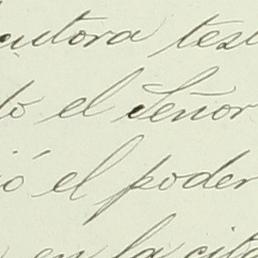 autora test
to el Señor
ió el poder
en la cita